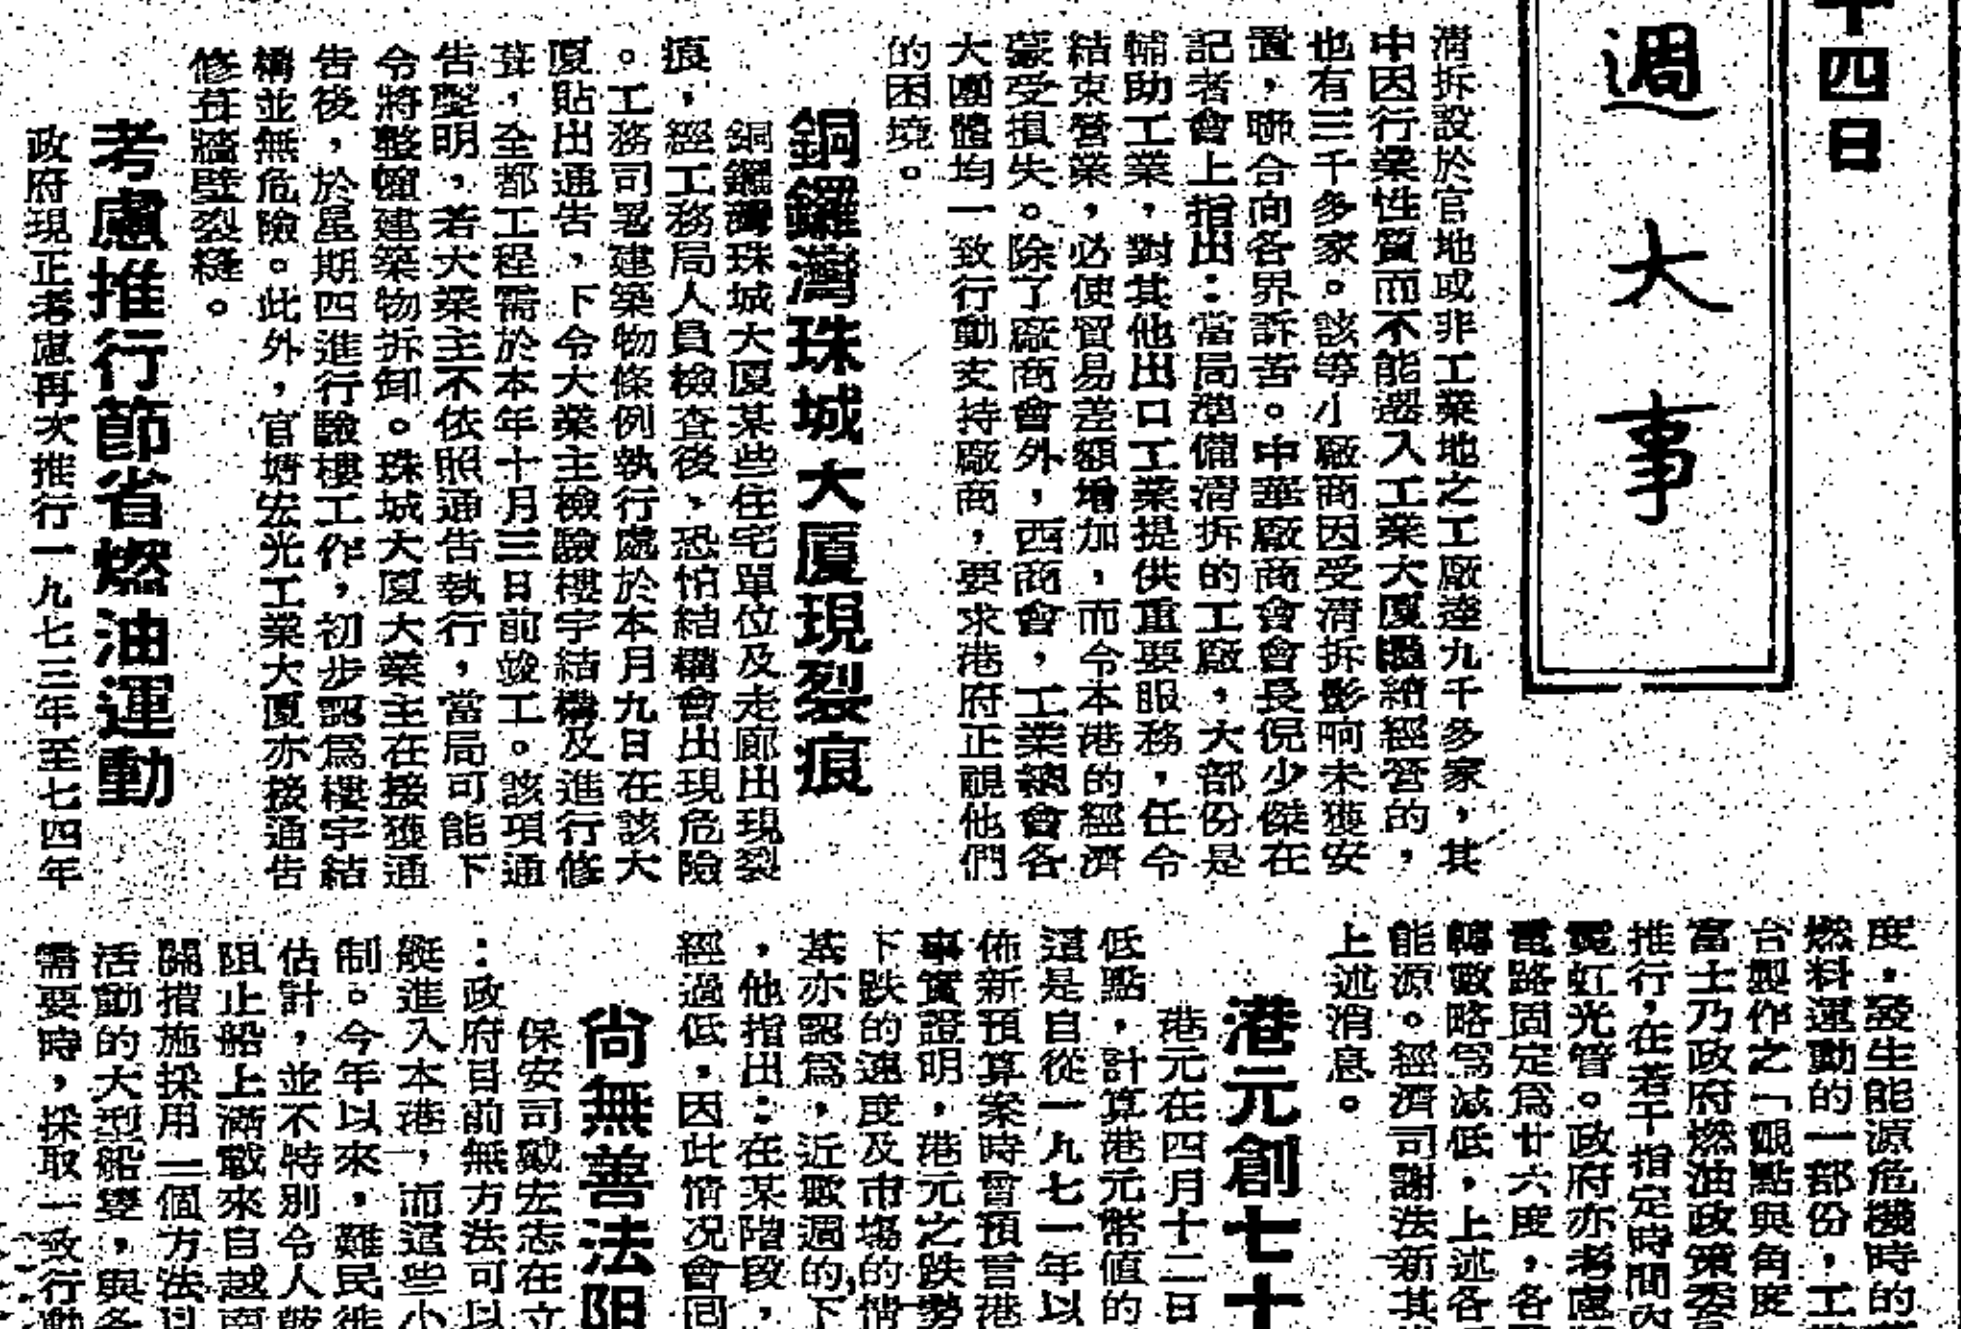 十四日
週大事
清拆設於官地或非工業地之工廠達九千多家，其
中因行業性質而不能遷入工業大廈繼續經營的，
也有三千多家。該等小廠商因受清拆影响未獲安
置，聯合向各界訴苦。中華廠商會會長倪少傑在
記者會上指出：當局準備清拆的工廠，大部份是
輔助工業，對其他出口工業提供重要服務，任令
結束營業，必使貿易差額增加，而令本港的經濟
蒙受損失。除了廠商會外，西商會，工業總會各
大團體均一致行動支持廠商，要求港府正視他們
的困境。
銅鑼灣珠城大厦現裂痕
銅鑼灣珠城大厦某些住宅單位及走廊出現裂
痕，經工務局人員檢查後，恐怕結構會出現危險
。工務司署建築物條例執行處於本月九日在該大
厦貼出通告，下令大業主檢驗樓宇結構及進行修
葺，全部工程需於本年十月三日前竣工。該項通
告聲明，若大業主不依照通告執行，當局可能下
令將整幢建築物拆卸。珠城大厦大業主在接獲通
告後，於星期四進行驗樓工作，初步認爲樓宇結
構並無危險。此外，官塘宏光工業大厦亦接通告
修葺牆壁裂縫。
考慮推行節省燃油運動
政府現正考慮再次推行一九七三年至七四年
度，發生能源危機時的
燃料運動的一部份，工
台製作之「觀點與角度
富士乃政府燃油政策委員
推行，在若干指定時間內
霓虹光管。政府亦考慮
電路固定爲廿六度，各
轉數略爲減低，上述各
能源。經濟司謝法新其
上述消息。
港元創七十
港元在四月十二日
低點，計算港元幣值的
還是自從一九七一年以
佈新預算案時曾預言港
事實證明，港元之跌勢
下跌的速度及市場的情
基亦認爲，近數週的下
，他指出：在某階段，
經過低，因此情况會回
尙無善法阻
保安司戴宏志在立
：政府目前無方法可以
艇進入本港，而這些小
制。今年以來，難民徙
估計，並不特別令人鼓
阻止船上滿載來自越南
關措施採用二個方法以
活動的大型船隻，與各
需要時，採取一致行動